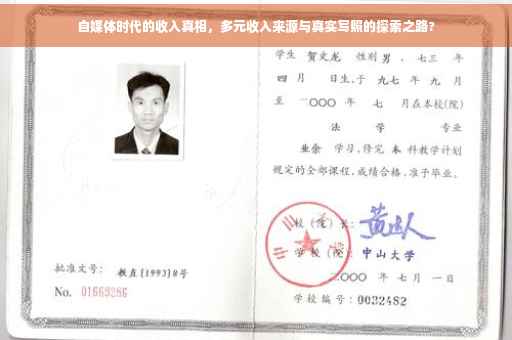 自媒体时代的收入真相，多元收入来源与真实写照的探索之路？
学生 贺文龙 性别 男，七三 年
四 月 日生，于 九七 年 九 月
至 二〇〇〇 年 七 月在本校(院)
法 学 专业
业余 学习，修完 本 科教学计划
规定的全部课程，成绩合格，准予毕业。
校 (院) 长：
学 校 (院)： 中山大学
二〇〇〇 年 七 月 一 日
学校编号：0032482
批准文号： 教直[1993]8号
No. 01669286